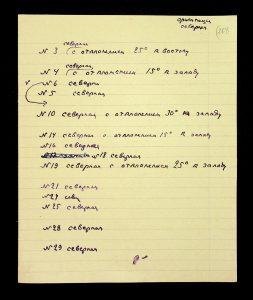 ориентация
северная
северн
N 3 (с отклонением 25° к востоку
северн
N 4 (с отклонением 15° к западу
N 6 северн
N 5 северная
N 10 северная с отклонением 30° к западу
N 14 северная с отклонением 15° к западу
N 16 северная
N 18 северная
N 19 северная с отклонением 25° к западу
N 21 северная
N 24 сев
N 25 северная
N 28 северная
N 29 северная